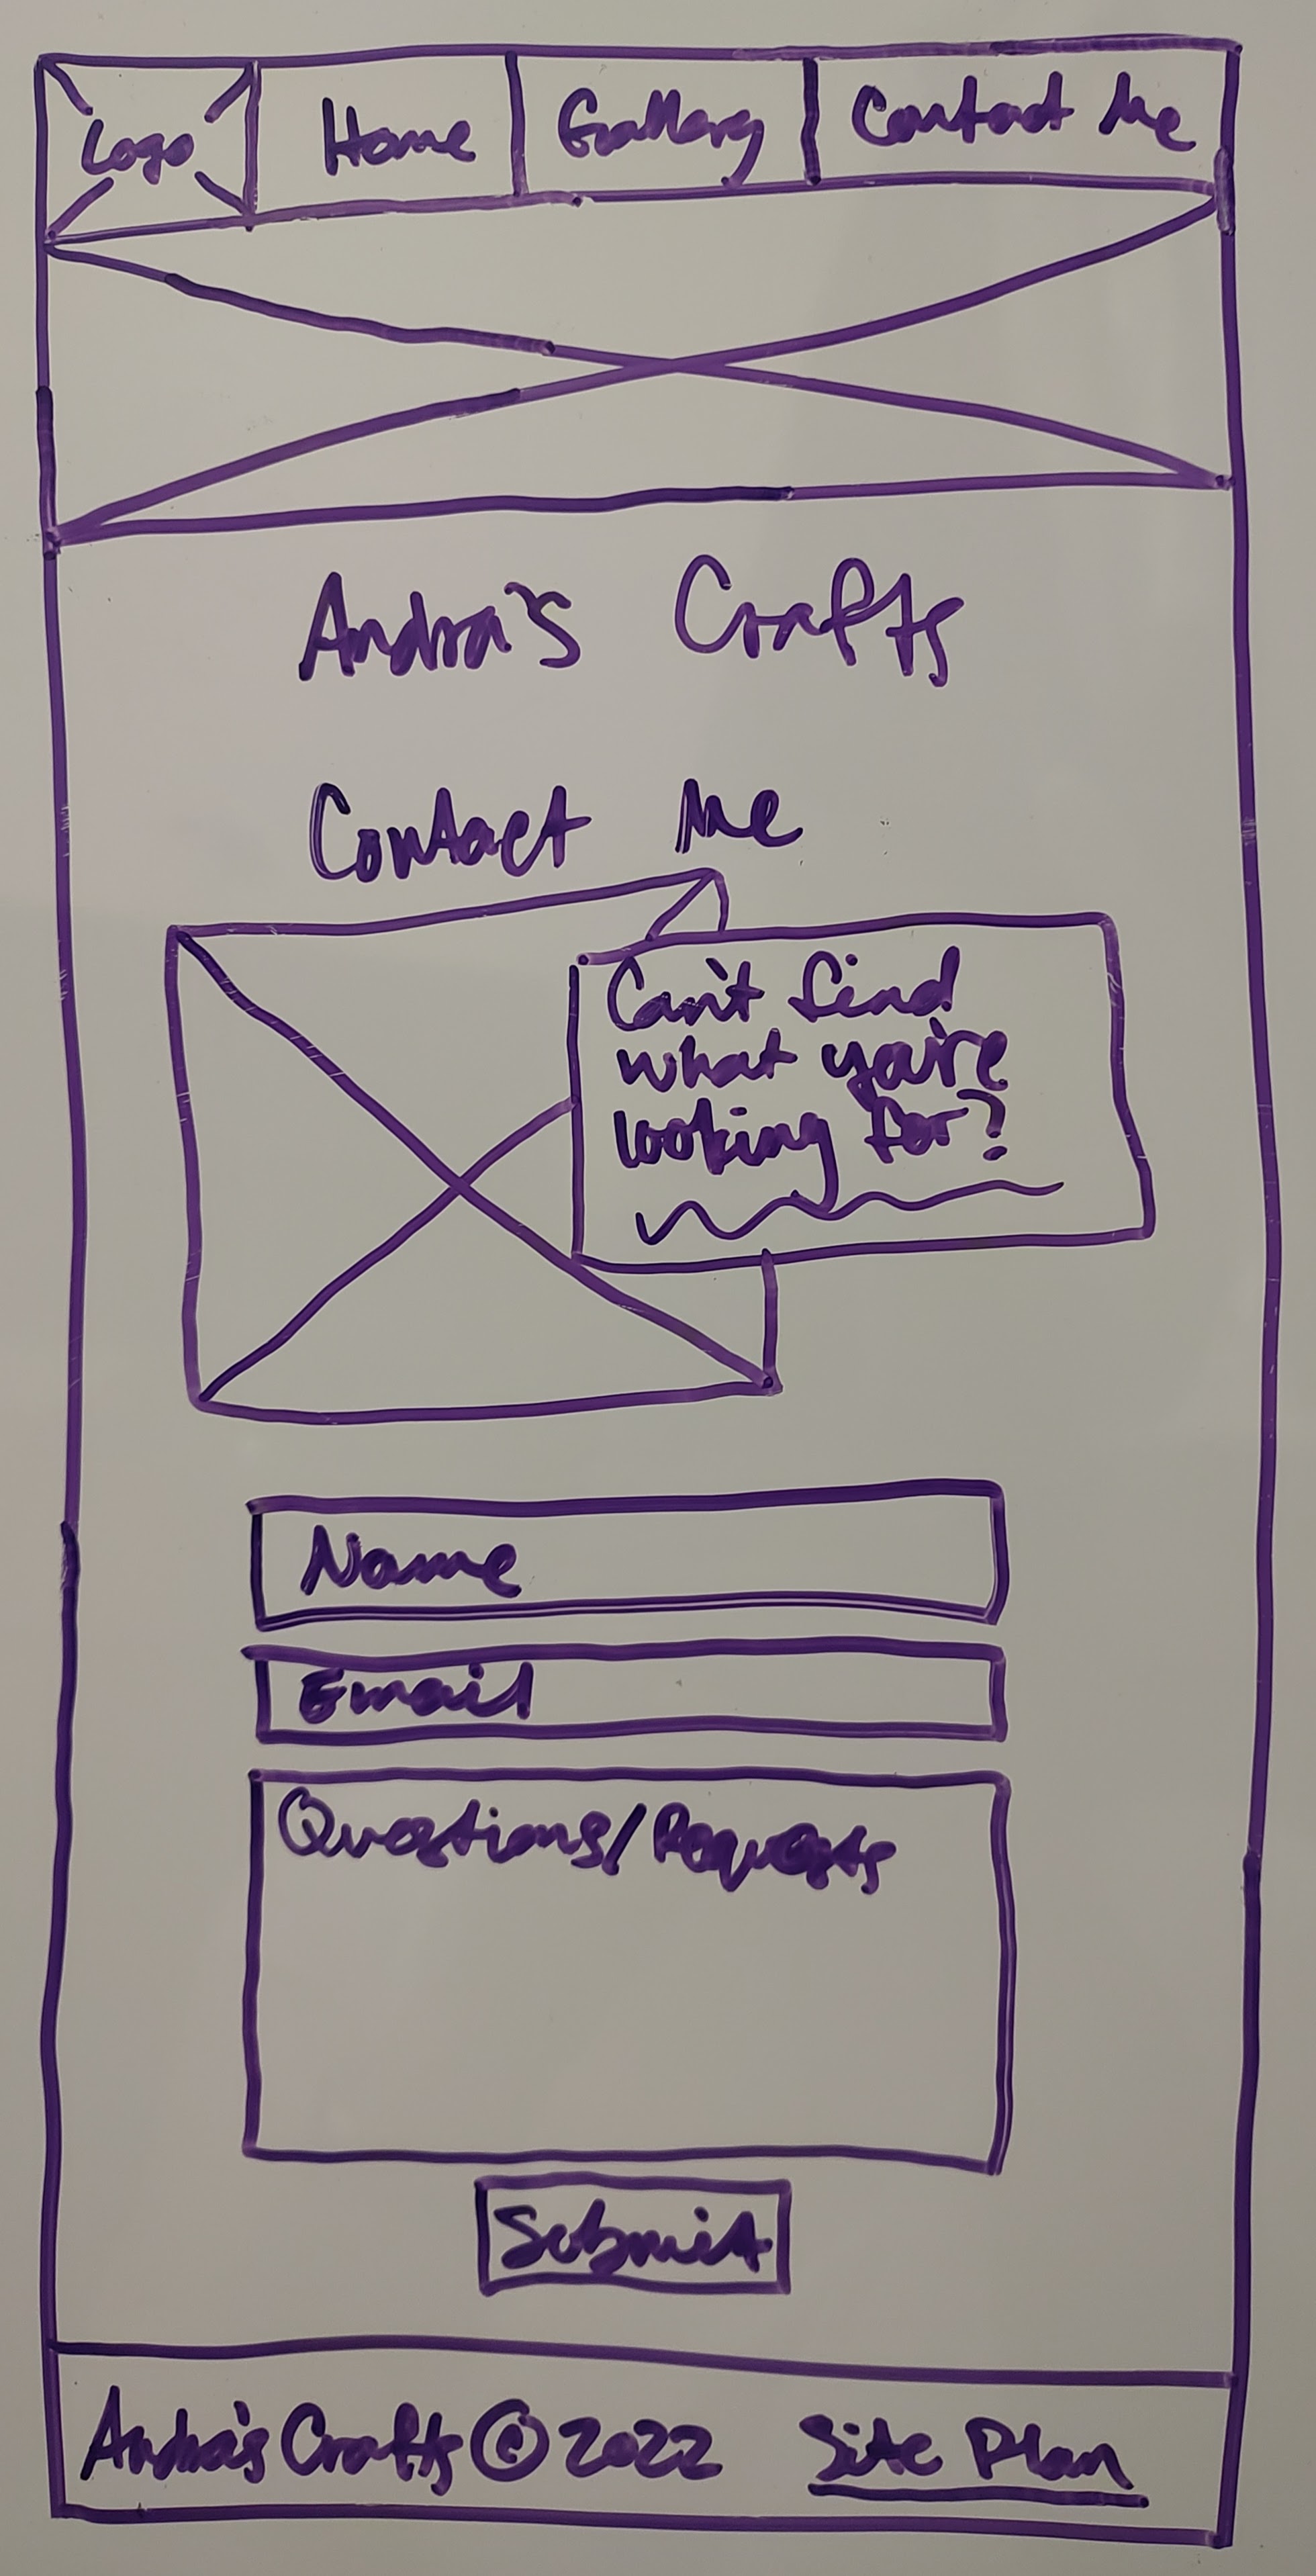 Logo Home Gallery Contact Me
Andra's Crafts
Contact Me
Can't find
what you're
looking for?
Name
Email
Questions/Requests
Submit
Andra's Crafts © 2022 Site Plan